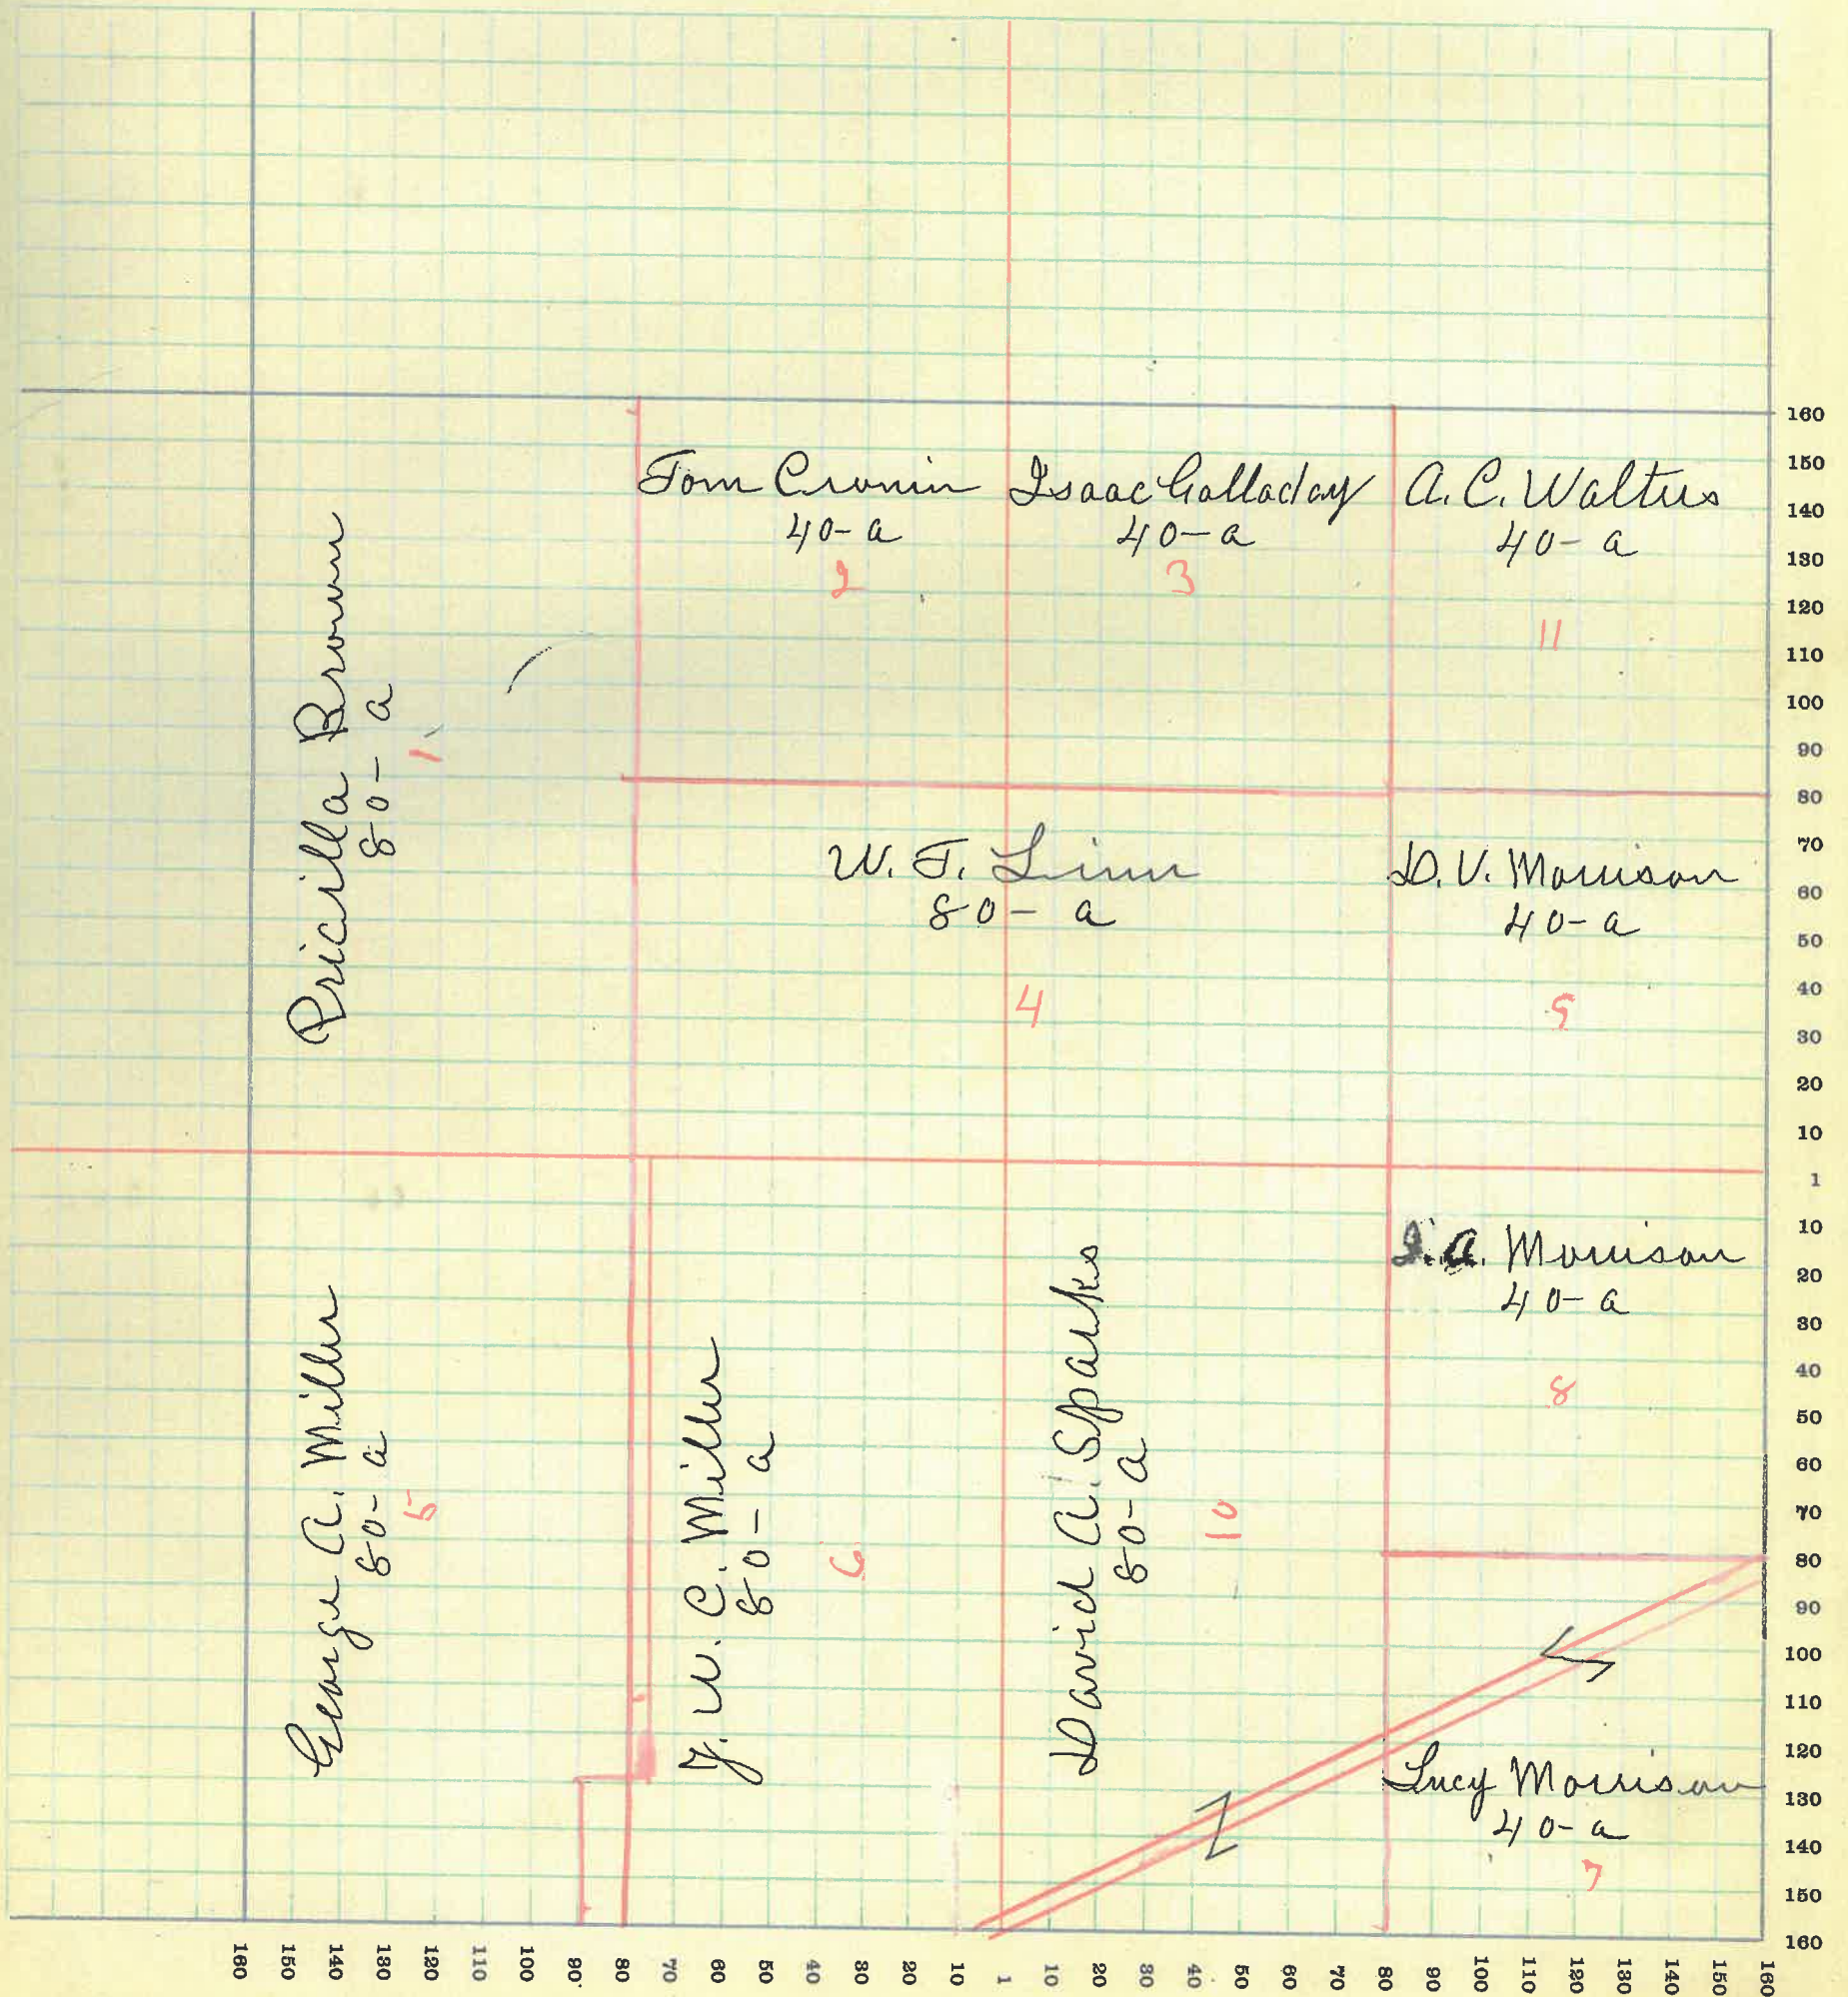 Pricilla Brown
80- a
1
Tom Cronin
40- a
2
Isaac Golladay
40- a
3
A. C. Walters
40- a
11
W. T. Linn
80- a
4
D. V. Morrison
40- a
9
George A. Miller
80- a
5
J. W. C. Miller
80- a
6
David A. Sparks
80- a
10
A. Morrison
40- a
8
Lucy Morrison
40- a
7
160
150
140
130
120
110
100
90
80
70
60
50
40
30
20
10
1
10
20
30
40
50
60
70
80
90
100
110
120
130
140
150
160
160 150 140 130 120 110 100 90 80 70 60 50 40 30 20 10 1 10 20 30 40 50 60 70 80 90 100 110 120 130 140 150 160